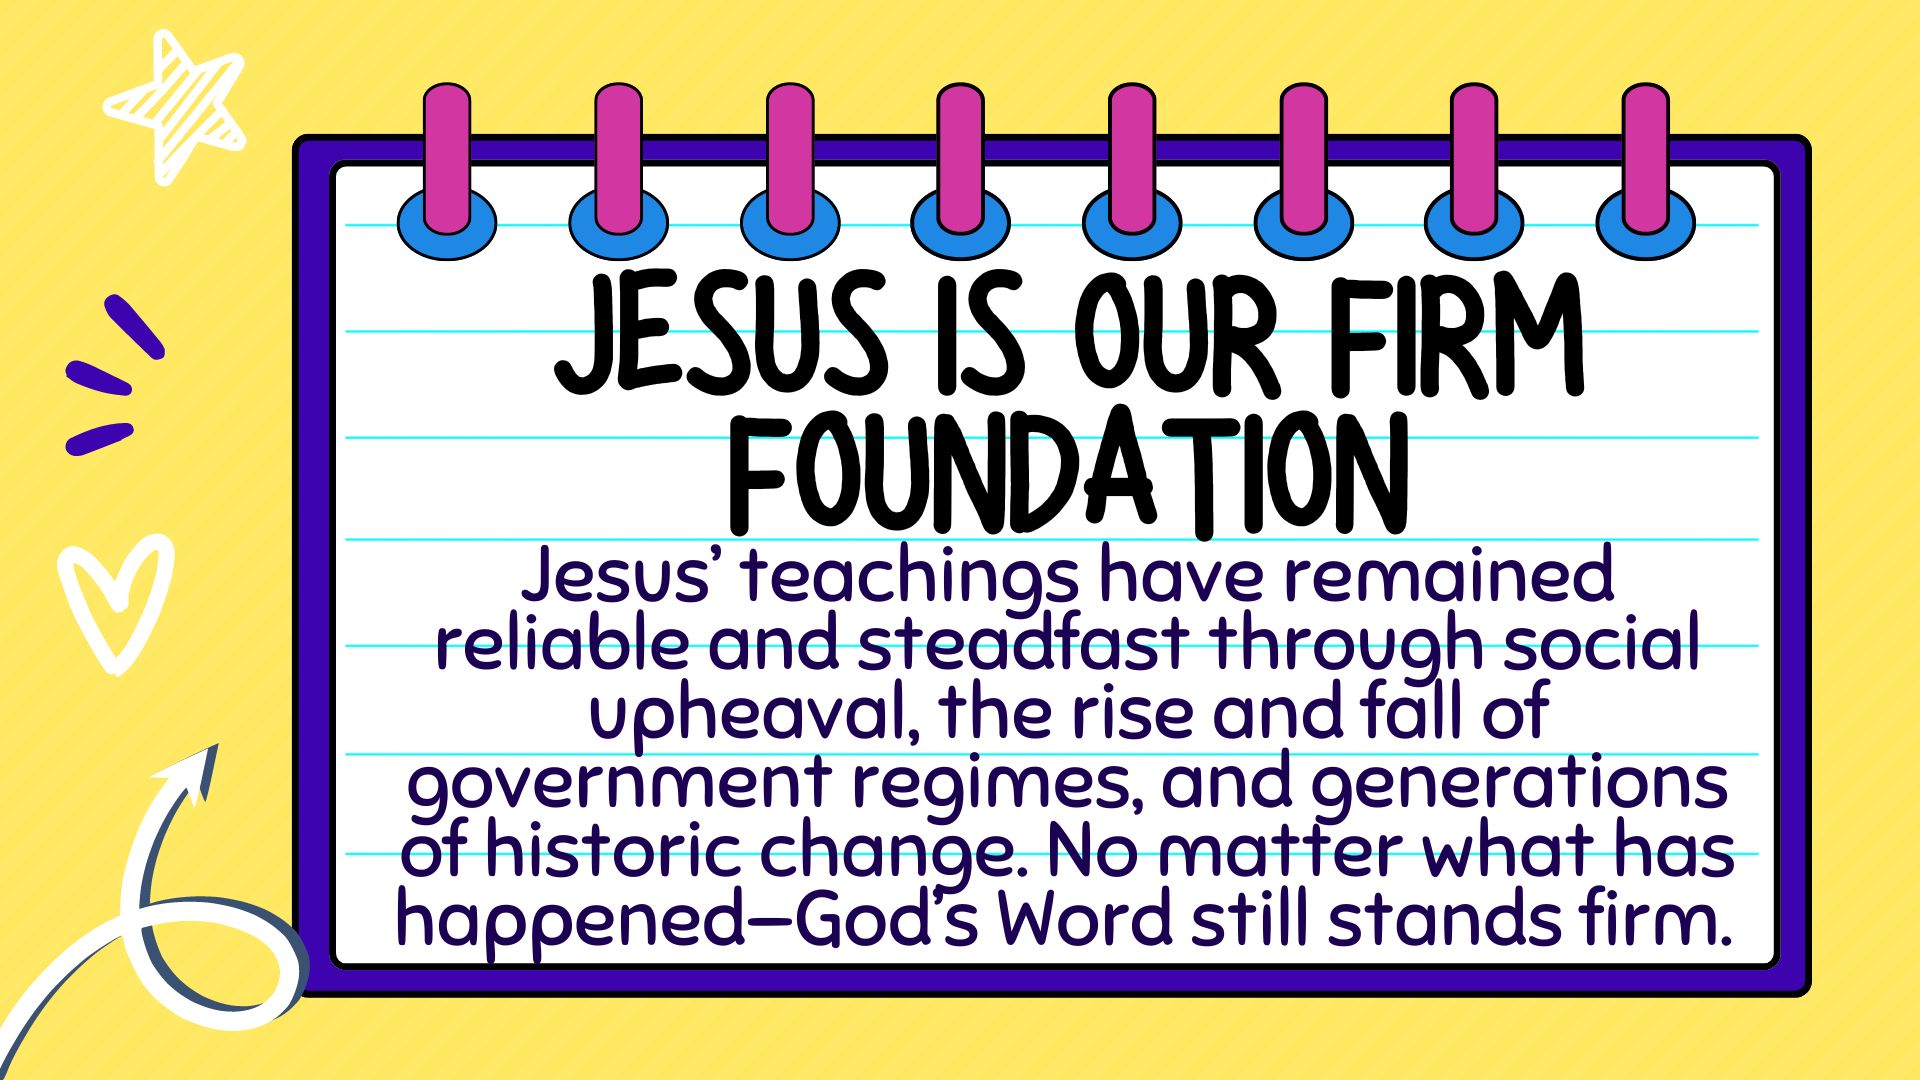 JESUS IS OUR FIRM
FOUNDATION
Jesus’ teachings have remained
reliable and steadfast through social
upheaval, the rise and fall of
government regimes, and generations
of historic change. No matter what has
happened—God’s Word still stands firm.